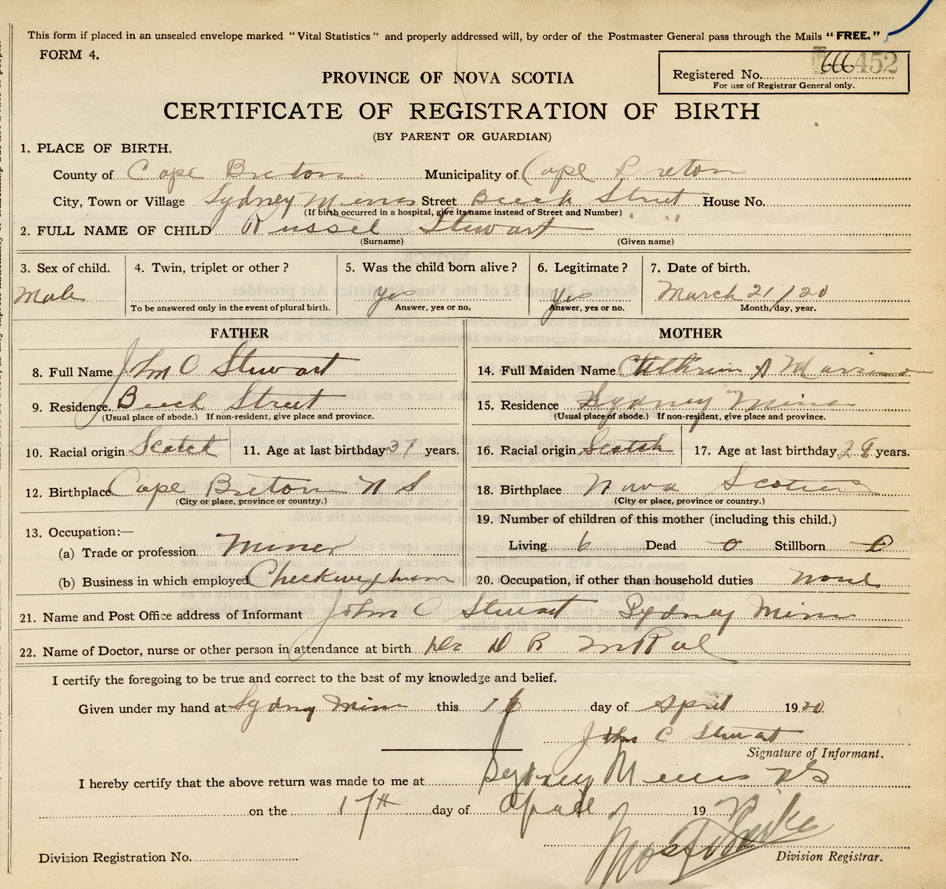 This form if placed in an unsealed envelope marked "Vital Statistics" and properly addressed will, by order of the Postmaster General pass through the Mails "FREE."
FORM 4.
PROVINCE OF NOVA SCOTIA
Registered No. 666 452
For use of Registrar General only.
CERTIFICATE OF REGISTRATION OF BIRTH
(BY PARENT OR GUARDIAN)
1. PLACE OF BIRTH.
County of Cape Breton Municipality of Cape Breton
City, Town or Village Sydney Mines Street Beech Street House No.
(If birth occurred in a hospital, give its name instead of Street and Number)
2. FULL NAME OF CHILD Russel Stewart
(Surname) (Given name)
3. Sex of child. 4. Twin, triplet or other? 5. Was the child born alive? 6. Legitimate? 7. Date of birth.
Male yes yes March 21/20
To be answered only in the event of plural birth. Answer, yes or no. Answer, yes or no. Month/day, year.
FATHER MOTHER
8. Full Name John C Stewart 14. Full Maiden Name
9. Residence Beech Street 15. Residence Sydney Mines
(Usual place of abode.) If non-resident, give place and province. (Usual place of abode.) If non-resident, give place and province.
10. Racial origin Scotch 11. Age at last birthday 37 years. 16. Racial origin Scotch 17. Age at last birthday 28 years.
12. Birthplace Cape Breton N S 18. Birthplace Nova Scotia
(City or place, province or country.) (City or place, province or country.)
13. Occupation:— 19. Number of children of this mother (including this child.)
(a) Trade or profession. Miner Living 6 Dead 0 Stillborn 0
(b) Business in which employed Checkweighman 20. Occupation, if other than household duties none
21. Name and Post Office address of Informant John C Stewart Sydney Mines
22. Name of Doctor, nurse or other person in attendance at birth Dr D R
I certify the foregoing to be true and correct to the best of my knowledge and belief.
Given under my hand at Sydney Mines this 16 day of April 1920
John C Stewart
Signature of Informant.
I hereby certify that the above return was made to me at Sydney Mines NS
on the 17th day of April 19
Division Registration No. Division Registrar.